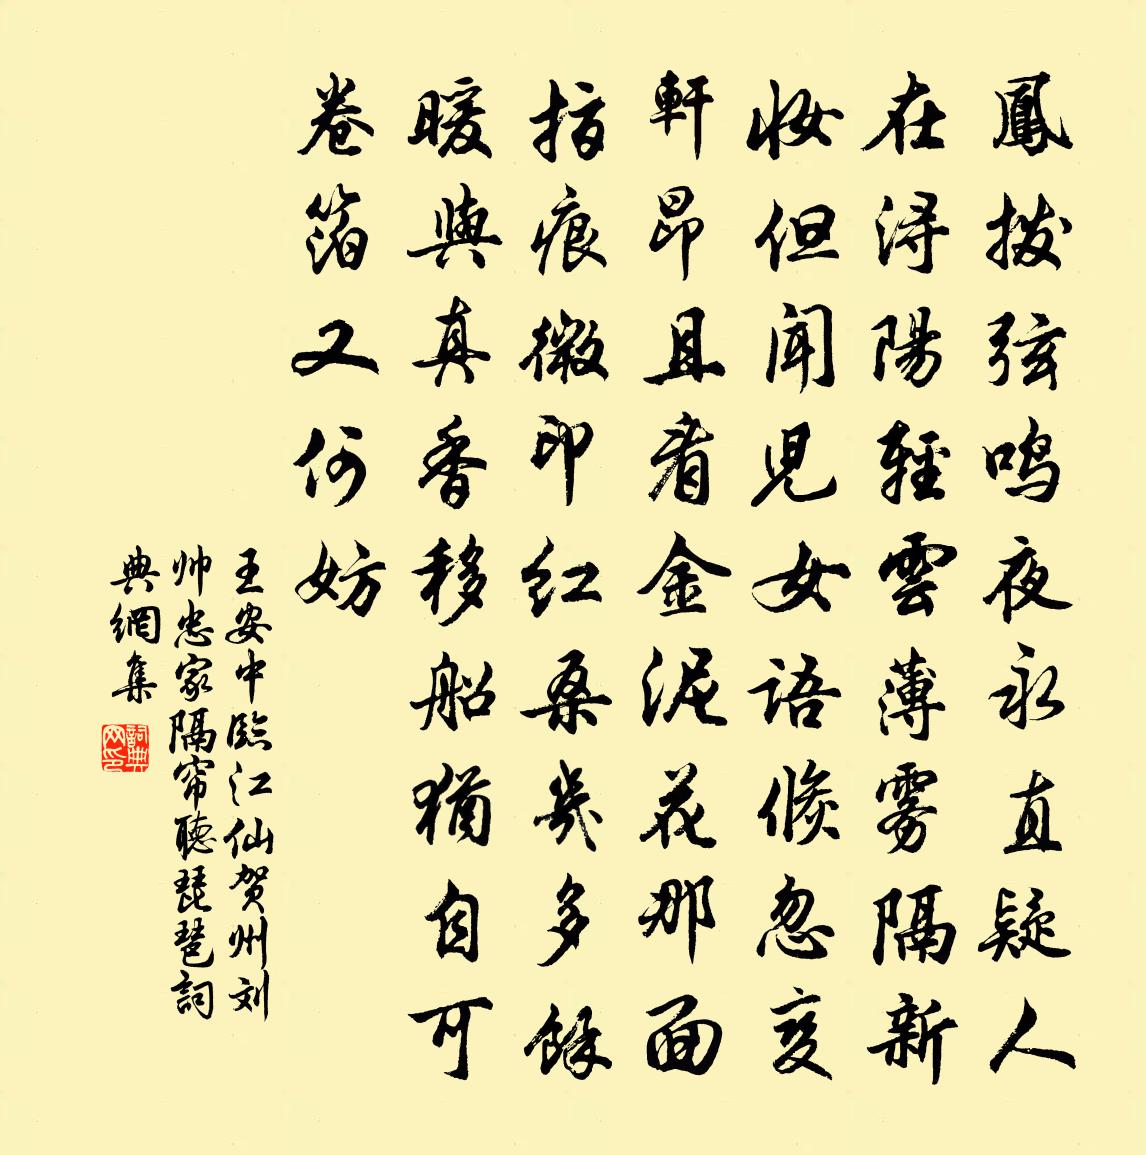 鳳拨弦鸣夜永直疑人
在浔陽輕雲薄雾隔新
妝但闻児女語倏忽变
軒昂且看金泥花那面
指痕微印红桑幾多餘
暖與真香移船猶自可
卷箔又何妨
王安中臨江仙贺州刘
帅忠家隔帘聽琵琶詞
典網集
詞典网印